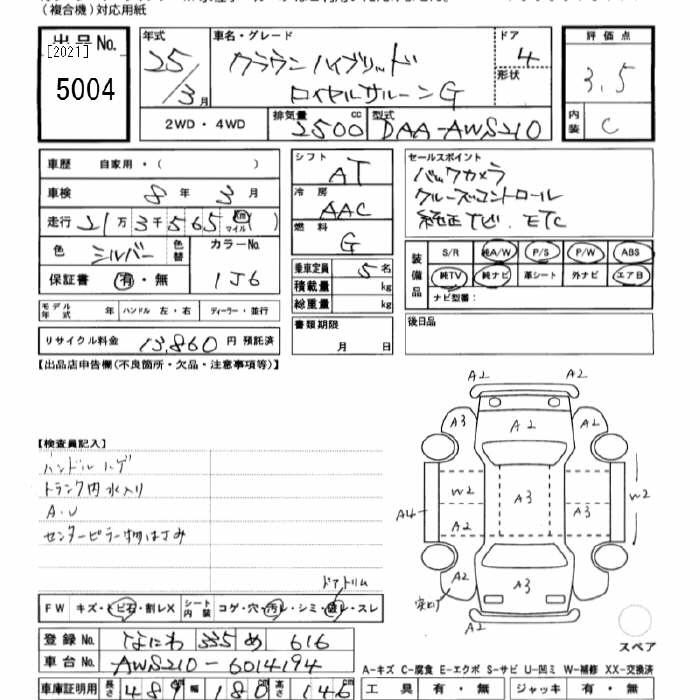 (複合機)対応用紙
出品No.
[2021]
5004
年式 25/3月
車名・グレード クラウンハイブリッド ロイヤルサルーンG
ドア 4
形状
2WD・4WD
排気量 2500cc
型式 DAA-AWS210
評価点 3.5
内装 C
車歴 自家用・( )
車検 8年3月
走行 21万3千565 km マイル )
色 シルバー 色替
カラーNo. 1J6
保証書 有・無
モデル年式 年 ハンドル 左・右 ディーラー・並行
リサイクル料金 13,860円 預託済
シフト AT
冷房 AAC
燃料 G
乗車定員 5名
積載量 kg
総重量 kg
書類期限
月 日
セールスポイント
バックカメラ
クルーズコントロール
純正ナビ. ETC
装備品 S/R 純A/W P/S P/W ABS
純TV 純ナビ 革シート 外ナビ エアB
ナビ型番:
後日品
【出品店申告欄(不良箇所・欠品・注意事項等)】
【検査員記入】
ハンドルハゲ
トランク内水入り
A.U
センターピラー物はさみ
ドアトリム
FW キズ・トビ石・割レX シート内装 コゲ・穴・汚レ・シミ・破レ・スレ
A2 A2
A2 A2 A2
W2 A3 W2
A4 A2 A3
A2 A3 A2
A2
スペア
登録No. なにわ 335 め 616
車台No. AWS210-6014194
A-キズ C-腐食 E-エクボ S-サビ U-凹ミ W-補修 XX-交換済
車庫証明用 長さ 489 幅 180 高さ 146
工具 有・無 ジャッキ 有・無